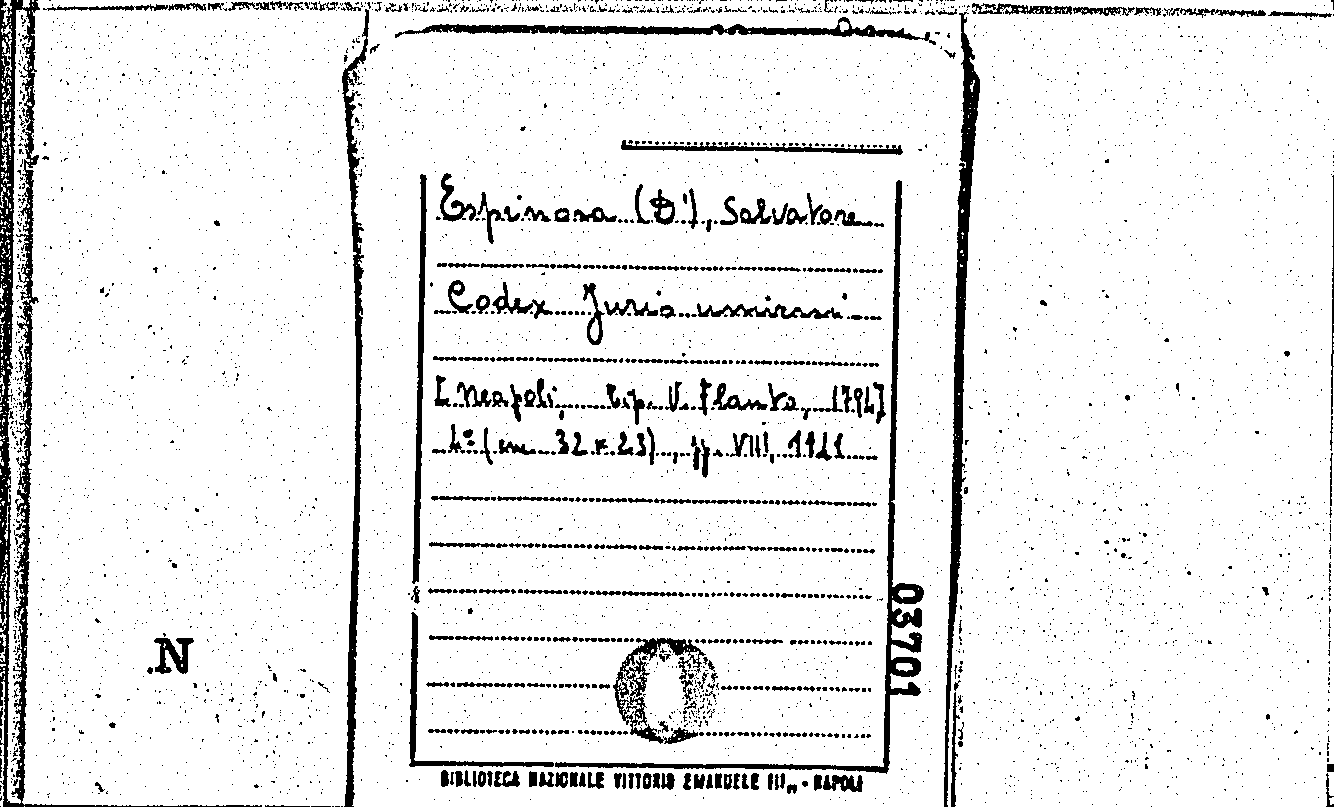 Espinosa (D'), Salvatore
Codex Juris universi.
[Neapoli, tip. V. Flauto, 1794]
4º (cm. 32 x 23), pp. VIII,
03701
N
BIBLIOTECA NAZIONALE VITTORIO EMANUELE III,, - NAPOLI